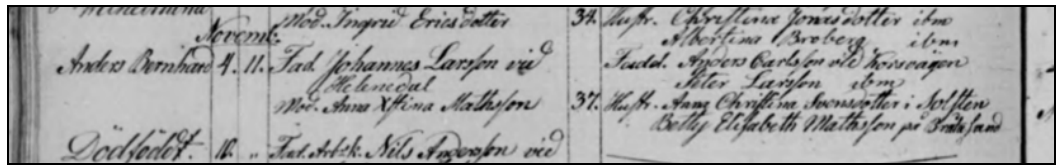 Mod. Ingrid Ericsdotter 34. Hustr. Christina Jonasdotter ibm
Novemb. Albertina Broberg ibm
Anders Bernhard 4. 11. Fad. Johannes Larsson vid Fadd. Anders Carlsson vid
Helenedal Peter Larsson ibm
Mod. Anna Xstina Mathsson 37. Hustr. Anna Christina Svensdotter i
Betty Elisabeth Mathsson på
Dödfödt. 10. " Fad. Arb.k. Nils Andersson vid